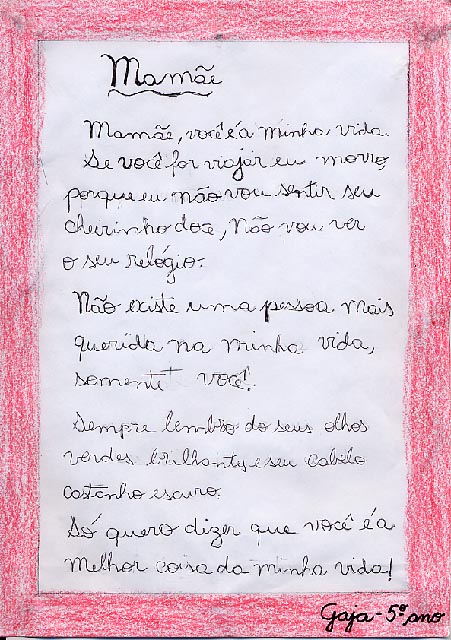 Mamãe
Mamãe, você é a minha vida.
Se você for viajar eu morro,
porque eu não vou sentir seu
cheirinho doce, não vou ver
o seu relógio.
Não existe uma pessoa mais
querida na minha vida,
somente você!
Sempre lembro do seus olhos
verdes brilhantes e seu cabelo
castanho escuro.
Só quero dizer que você é a
melhor coisa da minha vida!
Gaja - 5º ano